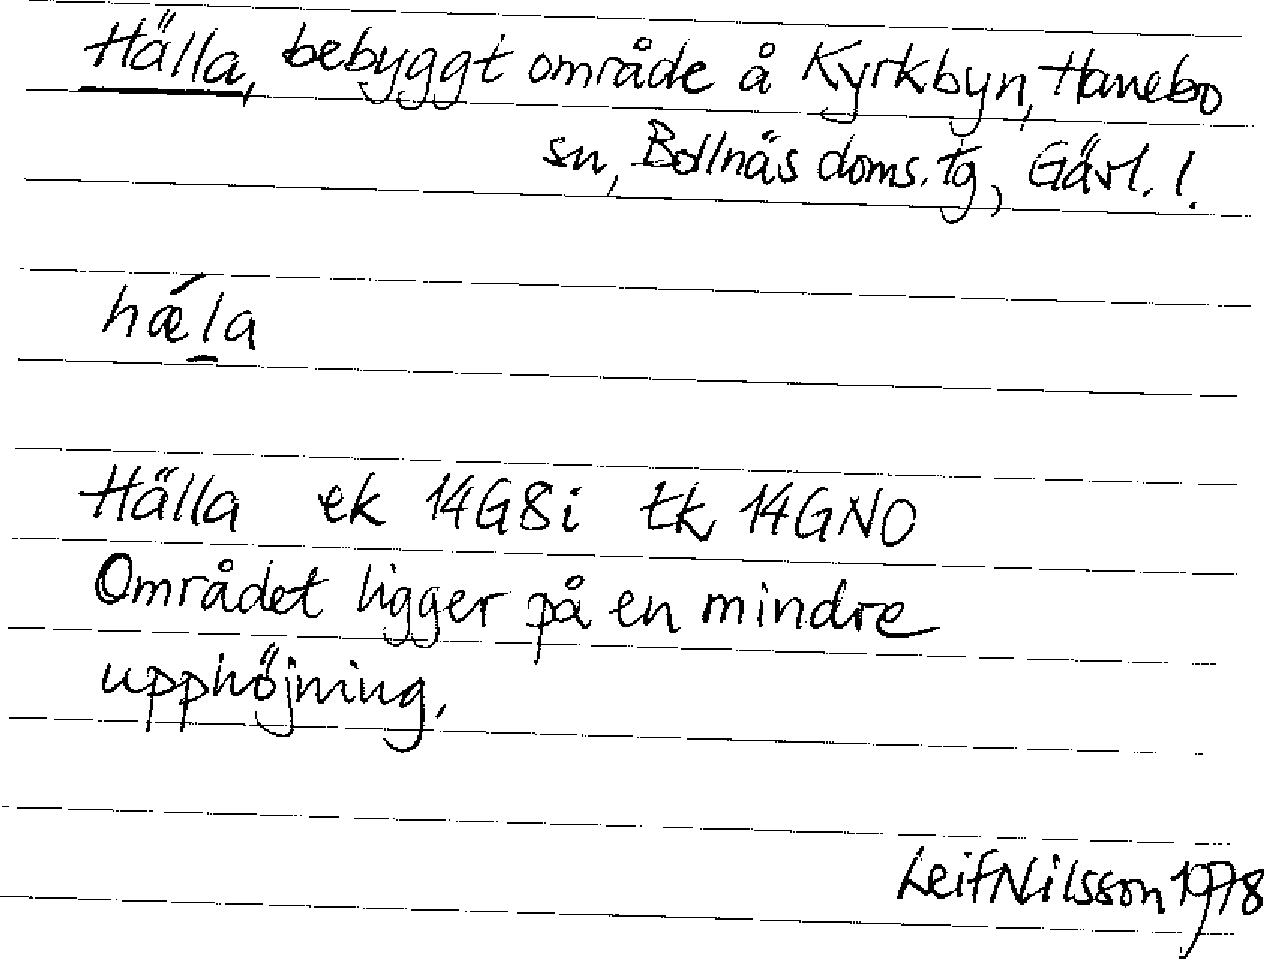 Hälla, bebyggt område å Kyrkbyn, Hanebo
sn, Bollnäs doms.tg, Gävl. l.
hǽl̲a
Hälla ek 14G8i tk 14GNO
Området ligger på en mindre
upphöjning.
Leif Nilsson 1978